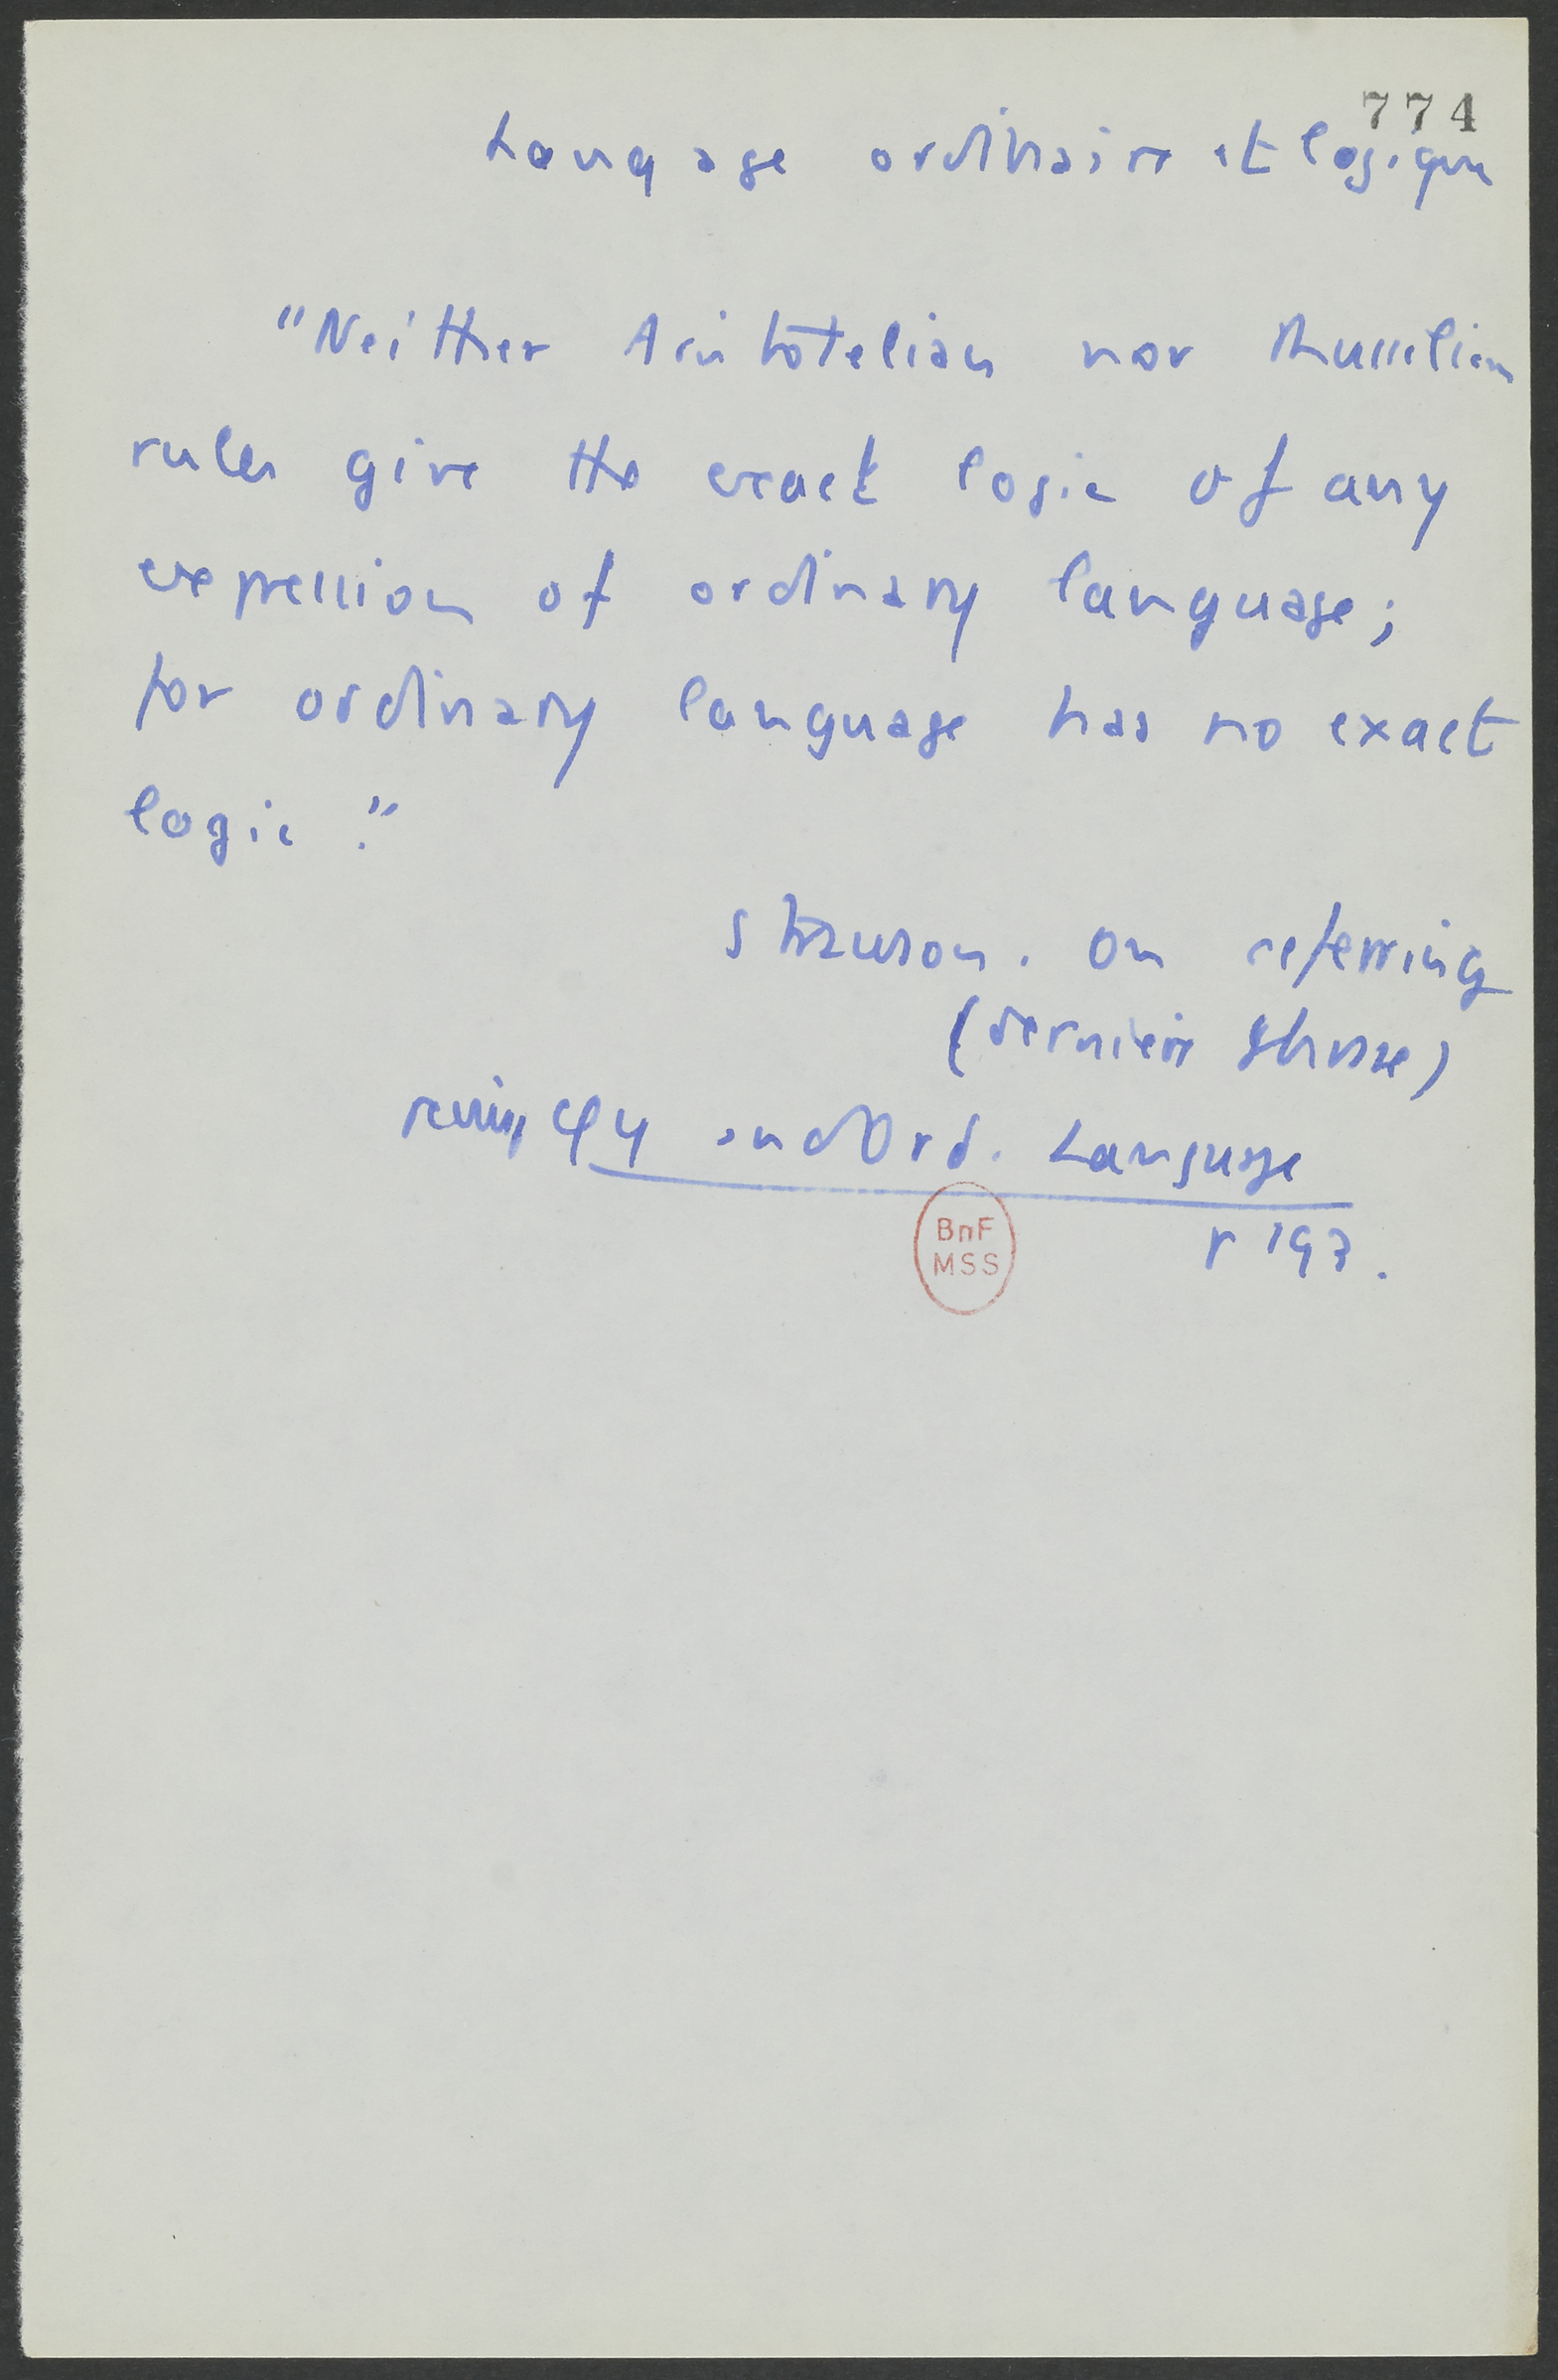 774
Langage ordinaire et logique
"Neither Aristotelian nor Russellian
rules give the exact logic of any
expression of ordinary language;
for ordinary language has no exact
logic."
Strawson. On referring
(dernière phrase)
φy and Ord. Language
p 193.
BnF
MSS